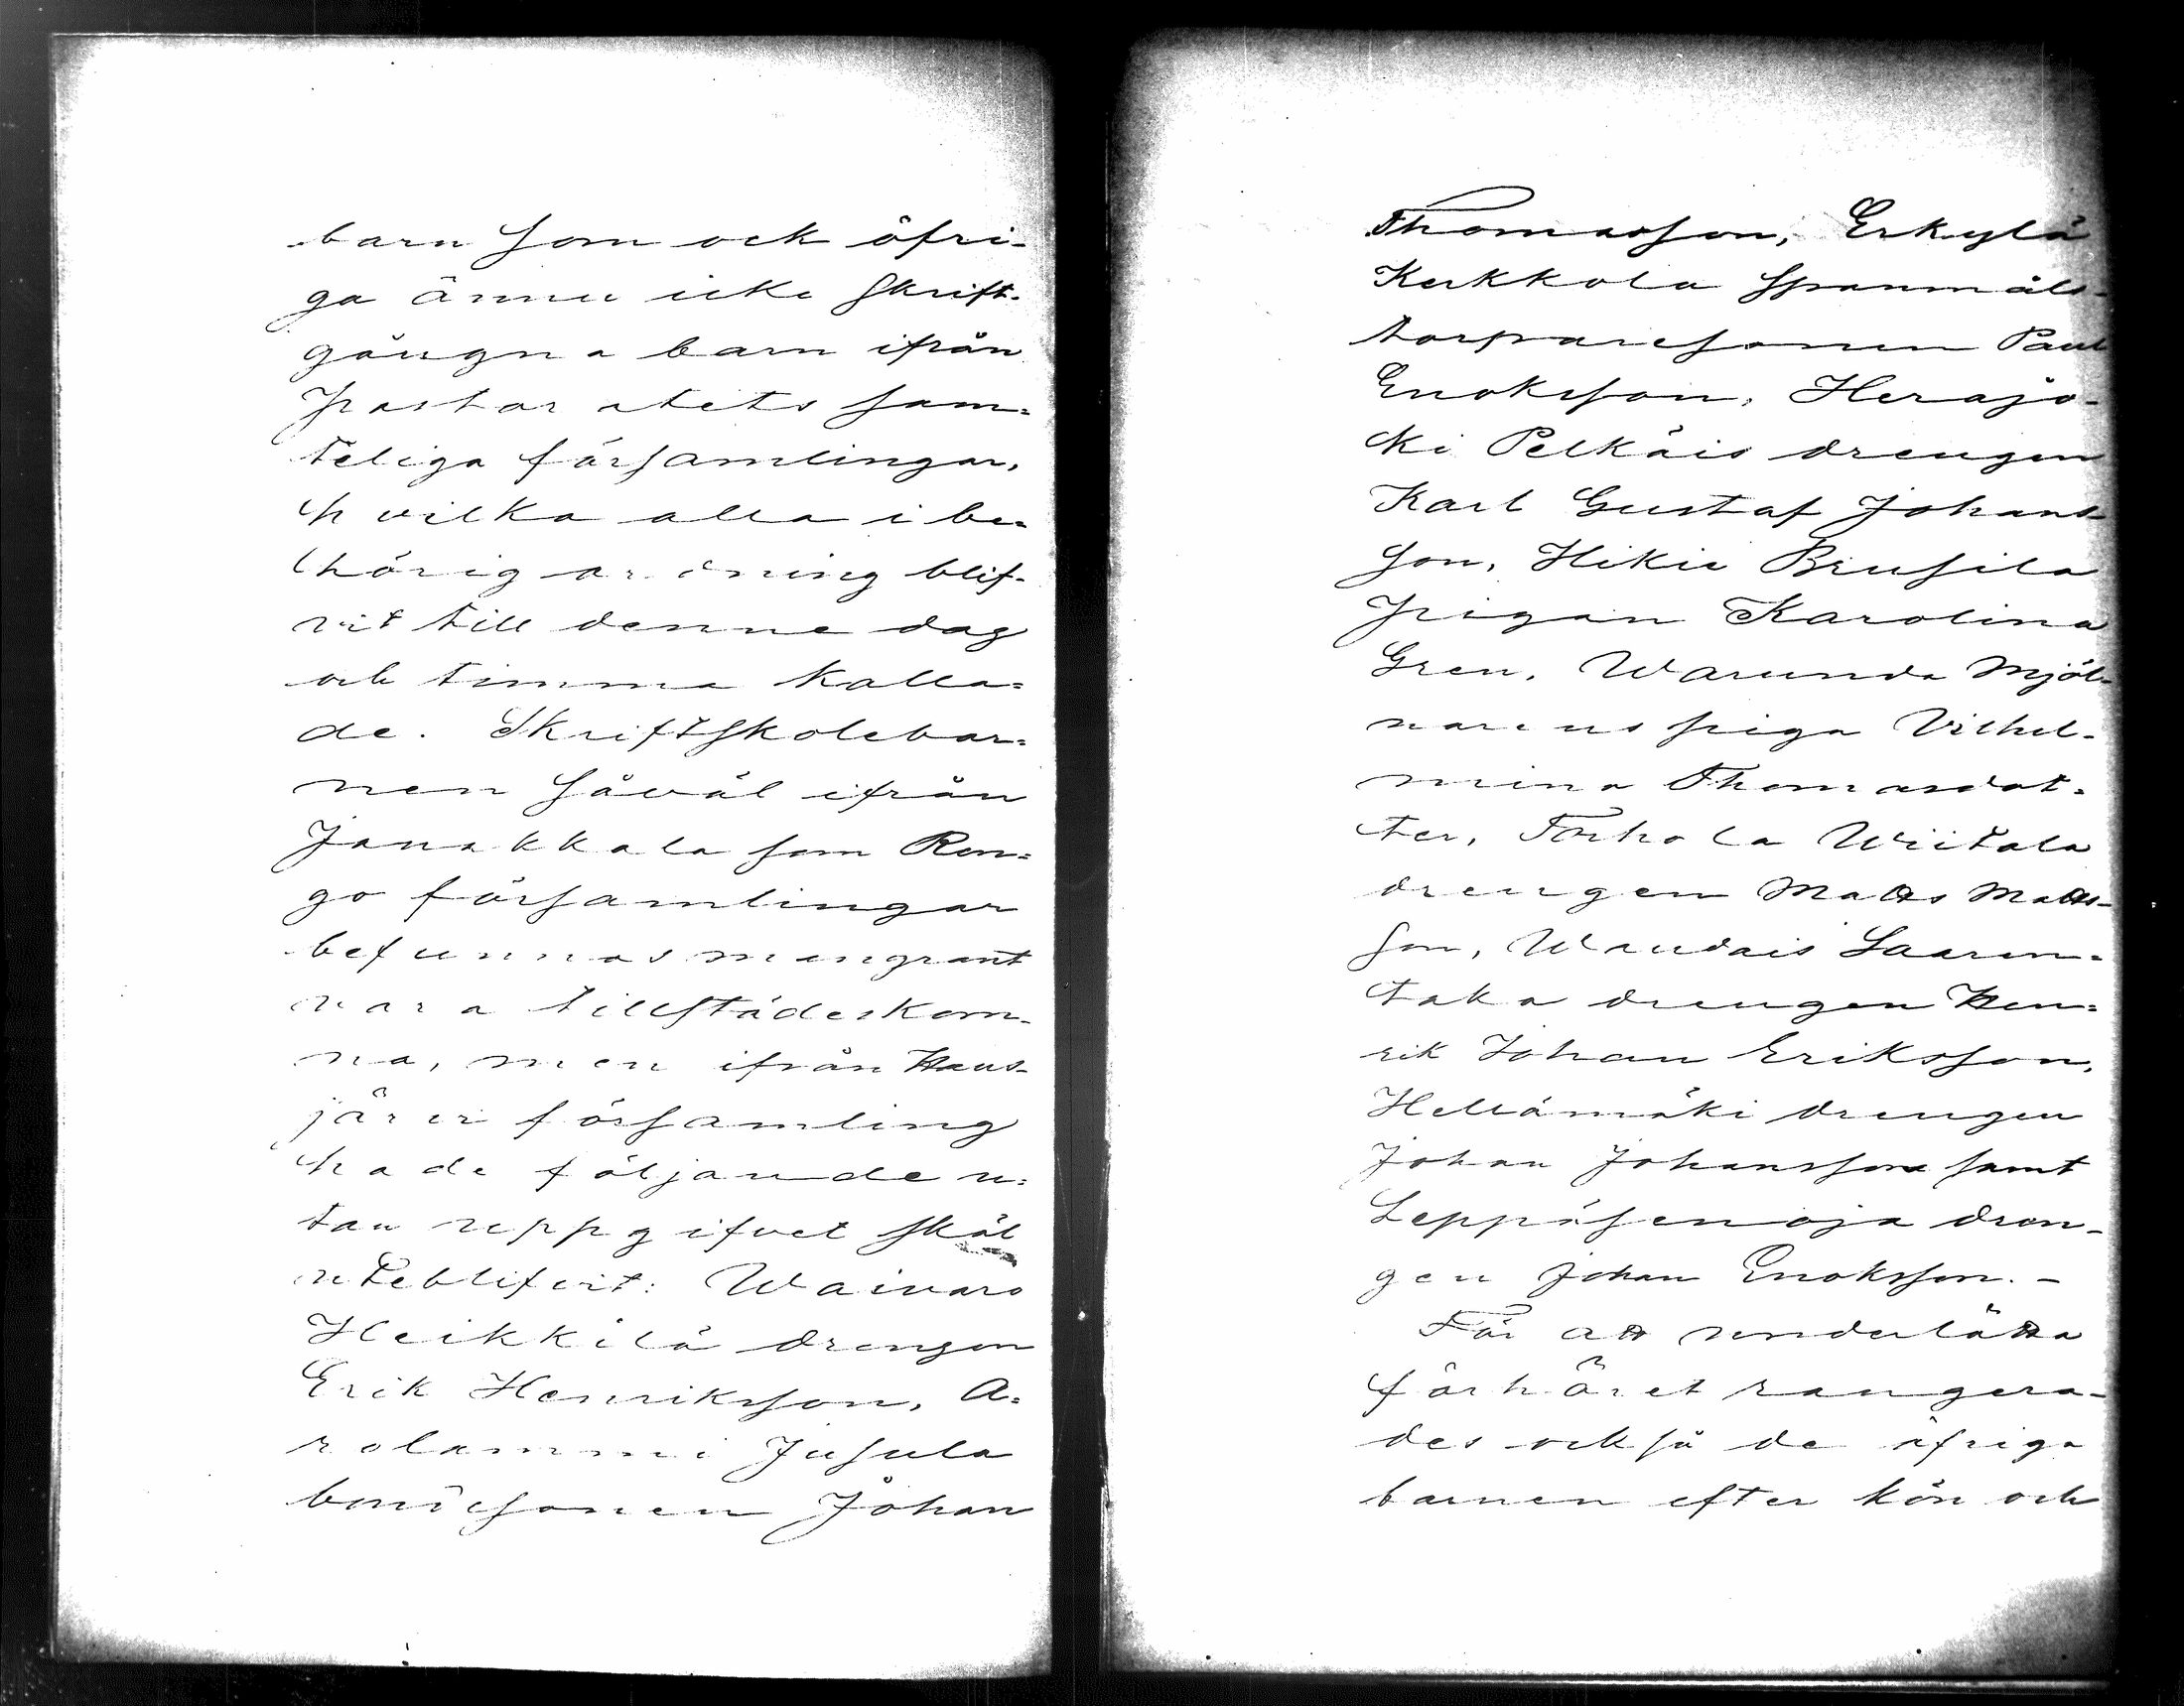 barn som ock öfri-
ga ännu icke skrift-
gångna barn ifrån
pastoratets sam=
teliga församlingar,
hvilka alla i be=
hörig ordning blif-
vit till denne dag
och timma kalla=
de. Skriftskolebar=
nen såväl ifrån
Janakkala som Ren=
go församlingar
befunnos mangrant
vara tillstädeskom-
na, men ifrån Haus-
järvi församling
hade följande u=
tan uppgifvet skäl
uteblifvit: Waivars
Heikkilä drengen
Erik Henriksson, A=
rolammi Jusula
bondesonen Johan
Thomasson, Erkylä
Kerkkola spanmåls-
torparesonen Paul
Enoksson, Herajo-
ki Pelkäis drengen
Karl Gustaf Johans-
son, Hikiä Brusila
pigan Karolina
Gren, Warunda Mjöl-
narens piga Vilhel-
mina Thomasdot=
ter, Torhola Wiitala
drengen Matts Matts-
son, Wandais Laaren=
taka drengen Hen=
rik Johan Eriksson,
Hellämäki drengen
Johan Johansson samt
Leppäsenoja dren-
gen Johan Enoksson. -
För att underlätta
förhöret rangera-
des också de öfriga
barnen efter kön och